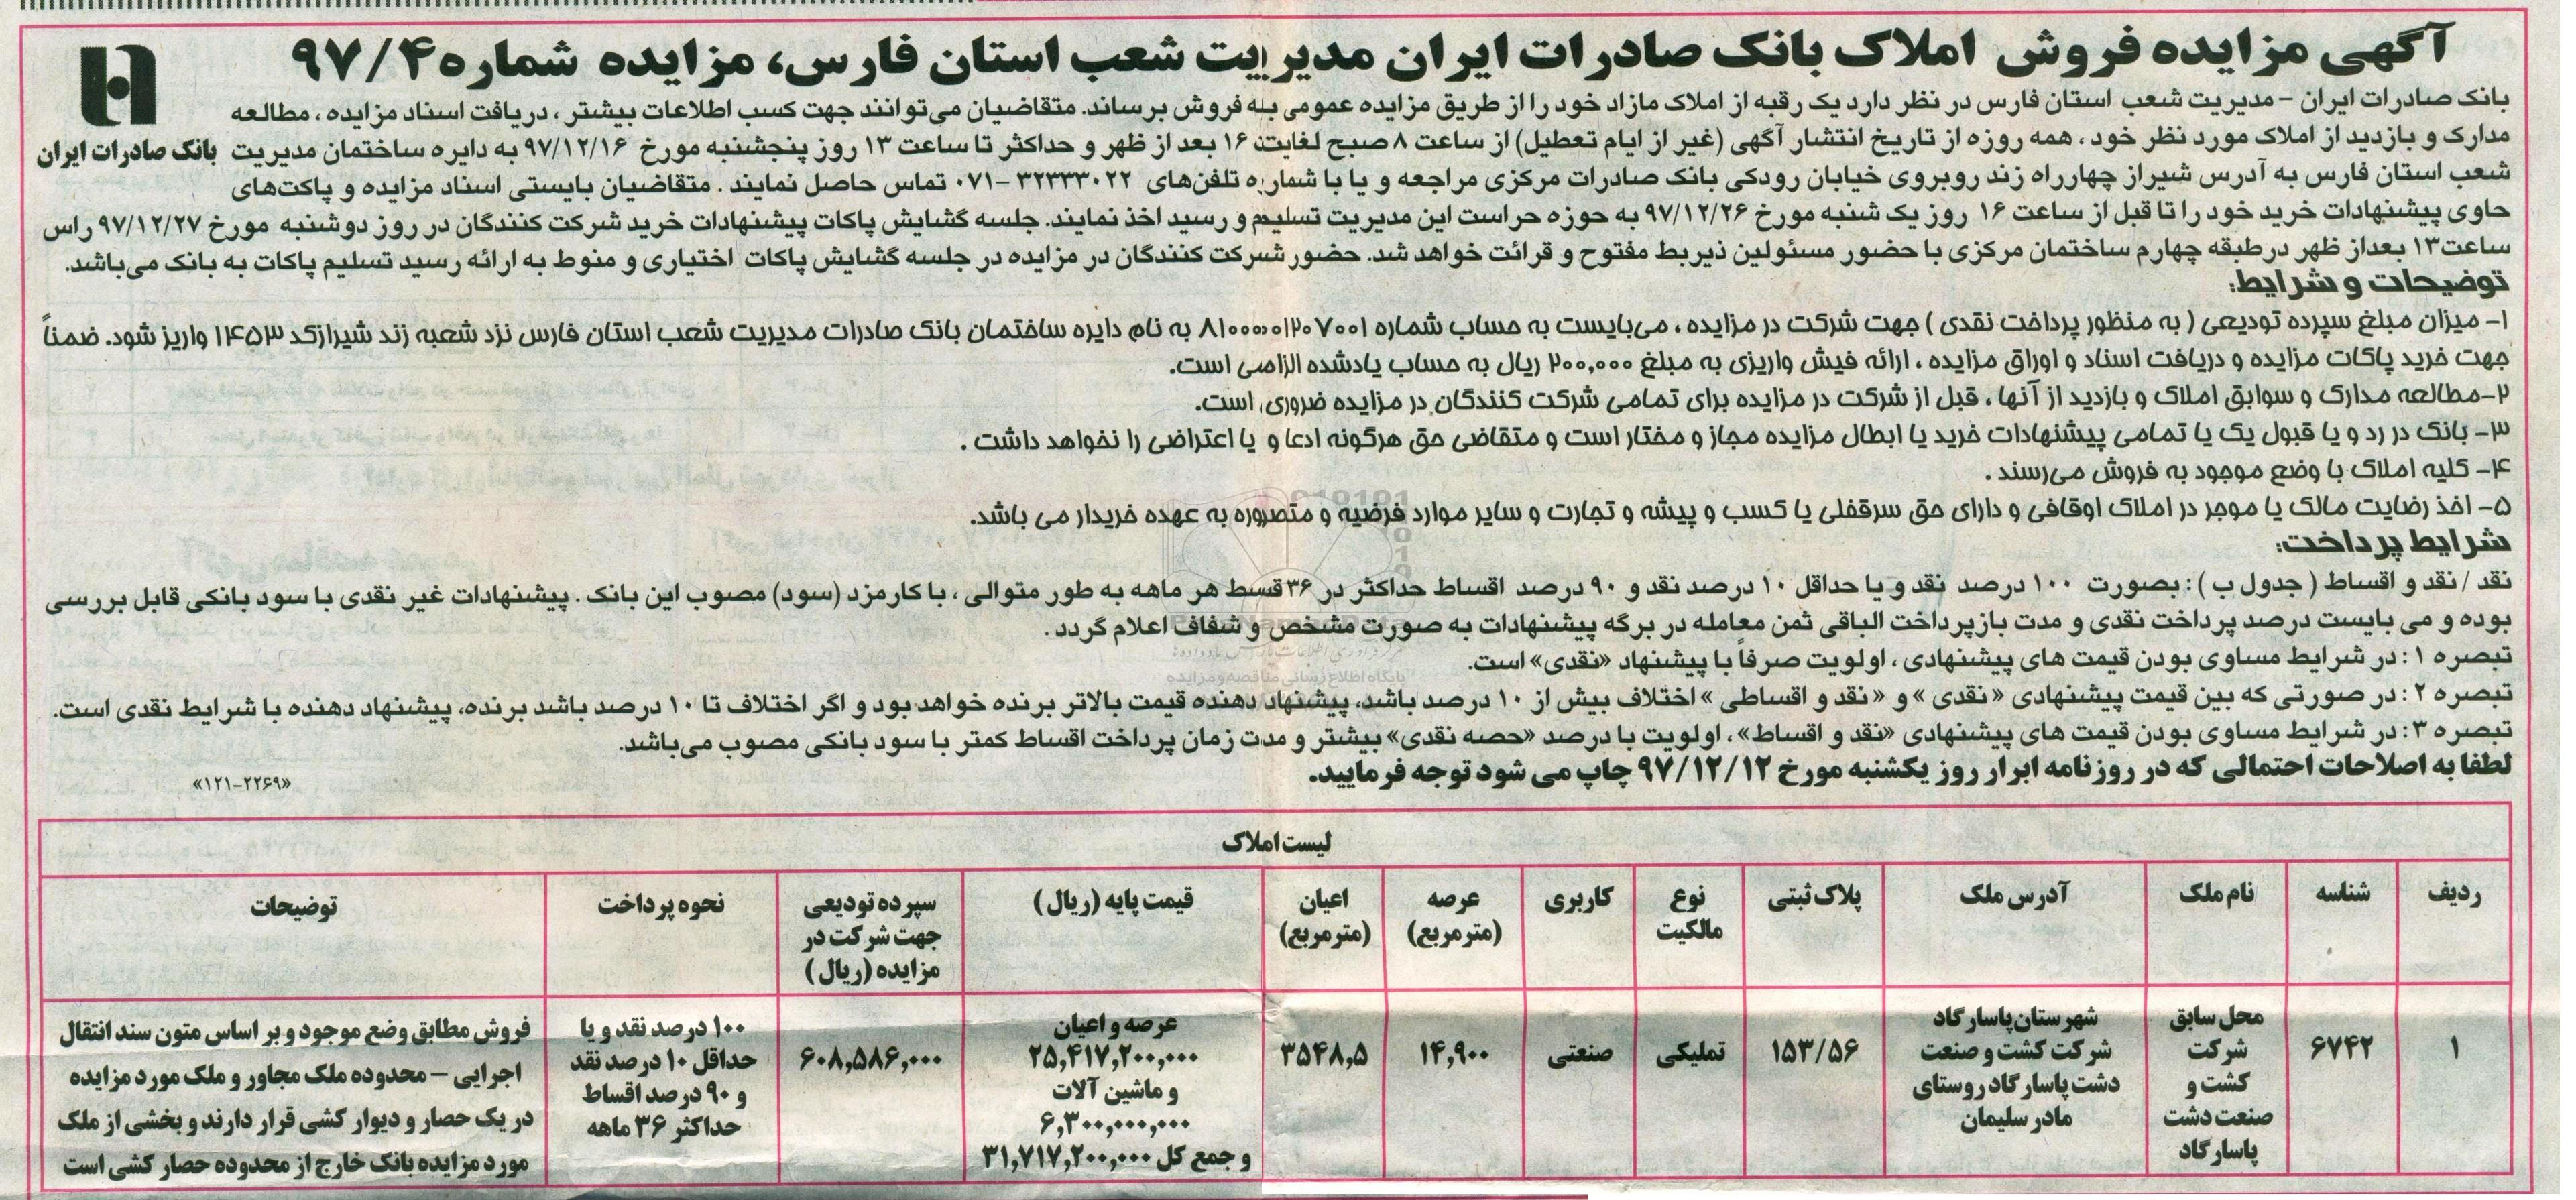 آگهی مزایده فروش املاک بانک صادرات ایران مدیریت شعب استان فارس، مزایده شماره ۹۷/۴
بانک صادرات ایران
بانک صادرات ایران - مدیریت شعب استان فارس در نظر دارد یک رقبه از املاک مازاد خود را از طریق مزایده عمومی به فروش برساند. متقاضیان می‌توانند جهت کسب اطلاعات بیشتر ، دریافت اسناد مزایده ، مطالعه
مدارک و بازدید از املاک مورد نظر خود ، همه روزه از تاریخ انتشار آگهی (غیر از ایام تعطیل) از ساعت ۸ صبح لغایت ۱۶ بعد از ظهر و حداکثر تا ساعت ۱۳ روز پنجشنبه مورخ ۹۷/۱۲/۱۶ به دایره ساختمان مدیریت
شعب استان فارس به آدرس شیراز چهارراه زند روبروی خیابان رودکی بانک صادرات مرکزی مراجعه و یا با شماره تلفن‌های ۳۲۳۳۳۰۲۲ -۰۷۱ تماس حاصل نمایند . متقاضیان بایستی اسناد مزایده و پاکت‌های
حاوی پیشنهادات خرید خود را تا قبل از ساعت ۱۶ روز یک شنبه مورخ ۹۷/۱۲/۲۶ به حوزه حراست این مدیریت تسلیم و رسید اخذ نمایند. جلسه گشایش پاکات پیشنهادات خرید شرکت کنندگان در روز دوشنبه مورخ ۹۷/۱۲/۲۷ راس
ساعت۱۳ بعداز ظهر درطبقه چهارم ساختمان مرکزی با حضور مسئولین ذیربط مفتوح و قرائت خواهد شد. حضور شرکت کنندگان در مزایده در جلسه گشایش پاکات اختیاری و منوط به ارائه رسید تسلیم پاکات به بانک می‌باشد.
توضیحات و شرایط:
۱- میزان مبلغ سپرده تودیعی ( به منظور پرداخت نقدی ) جهت شرکت در مزایده ، می‌بایست به حساب شماره ۸۱۰۰۰۰۰۱۲۰۷۰۰۱ به نام دایره ساختمان بانک صادرات مدیریت شعب استان فارس نزد شعبه زند شیرازکد ۱۴۵۳ واریز شود. ضمناً
جهت خرید پاکات مزایده و دریافت اسناد و اوراق مزایده ، ارائه فیش واریزی به مبلغ ۲۰۰,۰۰۰ ریال به حساب یادشده الزامی است.
۲-مطالعه مدارک و سوابق املاک و بازدید از آنها ، قبل از شرکت در مزایده برای تمامی شرکت کنندگان در مزایده ضروری است.
۳- بانک در رد و یا قبول یک یا تمامی پیشنهادات خرید یا ابطال مزایده مجاز و مختار است و متقاضی حق هرگونه ادعا و یا اعتراضی را نخواهد داشت .
۴- کلیه املاک با وضع موجود به فروش می‌رسند .
۵- اخذ رضایت مالک یا موجر در املاک اوقافی و دارای حق سرقفلی یا کسب و پیشه و تجارت و سایر موارد فرضیه و متصوره به عهده خریدار می باشد.
شرایط پرداخت:
نقد / نقد و اقساط ( جدول ب ) : بصورت ۱۰۰ درصد نقد و یا حداقل ۱۰ درصد نقد و ۹۰ درصد اقساط حداکثر در ۳۶ قسط هر ماهه به طور متوالی ، با کارمزد (سود) مصوب این بانک . پیشنهادات غیر نقدی با سود بانکی قابل بررسی
بوده و می بایست درصد پرداخت نقدی و مدت بازپرداخت الباقی ثمن معامله در برگه پیشنهادات به صورت مشخص و شفاف اعلام گردد .
تبصره ۱ : در شرایط مساوی بودن قیمت های پیشنهادی ، اولویت صرفاً با پیشنهاد «نقدی» است.
تبصره ۲ : در صورتی که بین قیمت پیشنهادی « نقدی » و « نقد و اقساطی » اختلاف بیش از ۱۰ درصد باشد، پیشنهاد دهنده قیمت بالاتر برنده خواهد بود و اگر اختلاف تا ۱۰ درصد باشد برنده، پیشنهاد دهنده با شرایط نقدی است.
تبصره ۳ : در شرایط مساوی بودن قیمت های پیشنهادی «نقد و اقساط» ، اولویت با درصد «حصه نقدی» بیشتر و مدت زمان پرداخت اقساط کمتر با سود بانکی مصوب می‌باشد.
لطفا به اصلاحات احتمالی که در روزنامه ابرار روز یکشنبه مورخ ۹۷/۱۲/۱۲ چاپ می شود توجه فرمایید.
«۱۲۱-۲۲۶۹»
لیست املاک
ردیف شناسه نام ملک آدرس ملک پلاک ثبتی نوع مالکیت کاربری عرصه (مترمربع) اعیان (مترمربع) قیمت پایه (ریال) سپرده تودیعی جهت شرکت در مزایده (ریال) نحوه پرداخت توضیحات
۱
۶۷۴۲
محل سابق
شرکت
کشت و
صنعت دشت
پاسارگاد
شهرستان پاسارگاد
شرکت کشت و صنعت
دشت پاسارگاد روستای
مادر سلیمان
۱۵۳/۵۶
تملیکی
صنعتی
۱۴,۹۰۰
۳۵۴۸,۵
عرصه و اعیان
۲۵,۴۱۷,۲۰۰,۰۰۰
و ماشین آلات
۶,۳۰۰,۰۰۰,۰۰۰
و جمع کل ۳۱,۷۱۷,۲۰۰,۰۰۰
۶۰۸,۵۸۶,۰۰۰
۱۰۰ درصد نقد و یا
حداقل ۱۰ درصد نقد
و ۹۰ درصد اقساط
حداکثر ۳۶ ماهه
فروش مطابق وضع موجود و بر اساس متون سند انتقال
اجرایی - محدوده ملک مجاور و ملک مورد مزایده
در یک حصار و دیوار کشی قرار دارند و بخشی از ملک
مورد مزایده بانک خارج از محدوده حصار کشی است